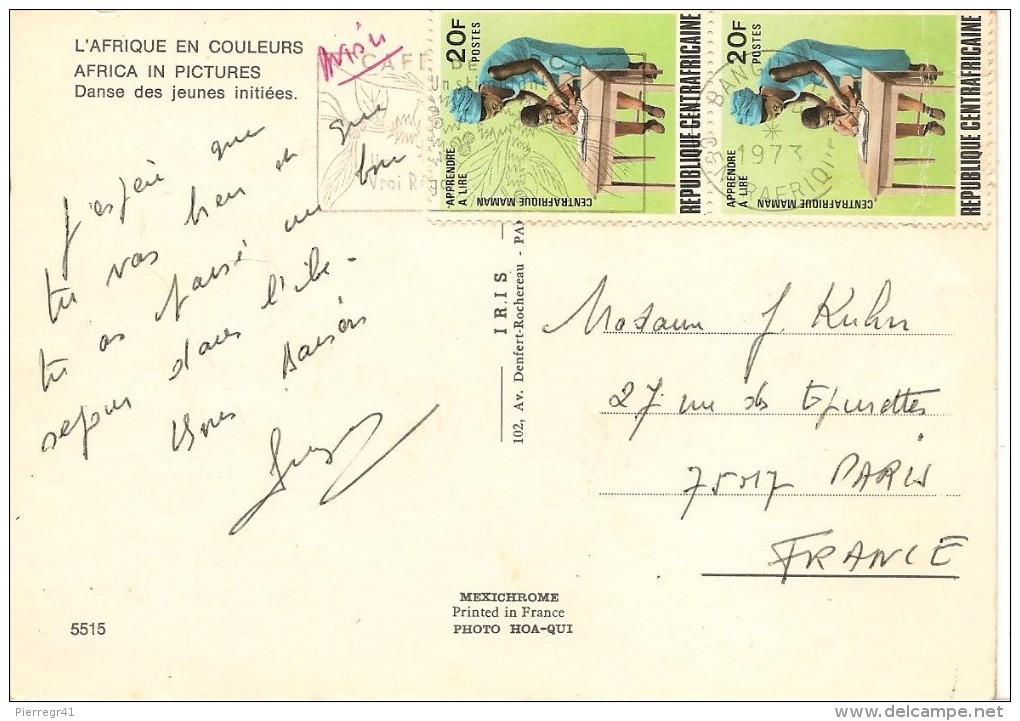 L'AFRIQUE EN COULEURS
AFRICA IN PICTURES
Danse des jeunes initiées.
CAFE DE
Vrai
20F
POSTES
APPRENDRE
A LIRE
CENTRAFRIQUE MAMAN
REPUBLIQUE CENTRAFRICAINE
20F
POSTES
APPRENDRE
A LIRE
CENTRAFRIQUE MAMAN
REPUBLIQUE CENTRAFRICAINE
1973
J'espère que
tu vas bien et que
tu as passé un bon
sejour dans l'ile.
Bons Baisers
IRIS
102, Av. Denfert-Rochereau - PA
Madame J. Kuhn
27 rue des Epinettes
75017 PARIS
FRANCE
MEXICHROME
Printed in France
PHOTO HOA-QUI
5515
Pierregr41
delcampe.net